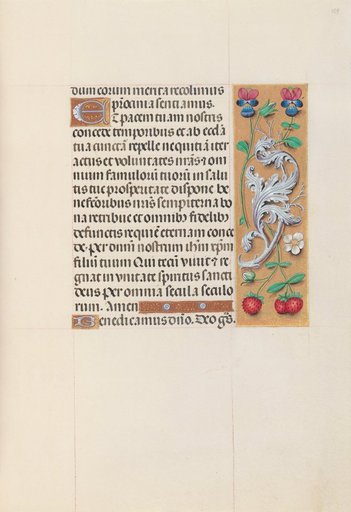 dum eorum merita recolimus
patrocinia sentiamus.
Et pacem tuam nostris
concede temporibus et ab eccl'a
tua cunctam repelle nequitiam iter
actus et voluntates nr'as & om
nium famulorum tuorum in salu
tis tue prosperitate dispone be
nefactoribus nr'is sempiterna bo
na retribue et omnibus fidelibus
defunctis requiem eternam conce
de. Per dn'm nostrum ih'm xp'm
filium tuum Qui tecum vivit & re
gnat in unitate spiritus sancti
deus Per omnia secula seculo
rum. Amen
Benedicamus dn'o. Deo gr'as.